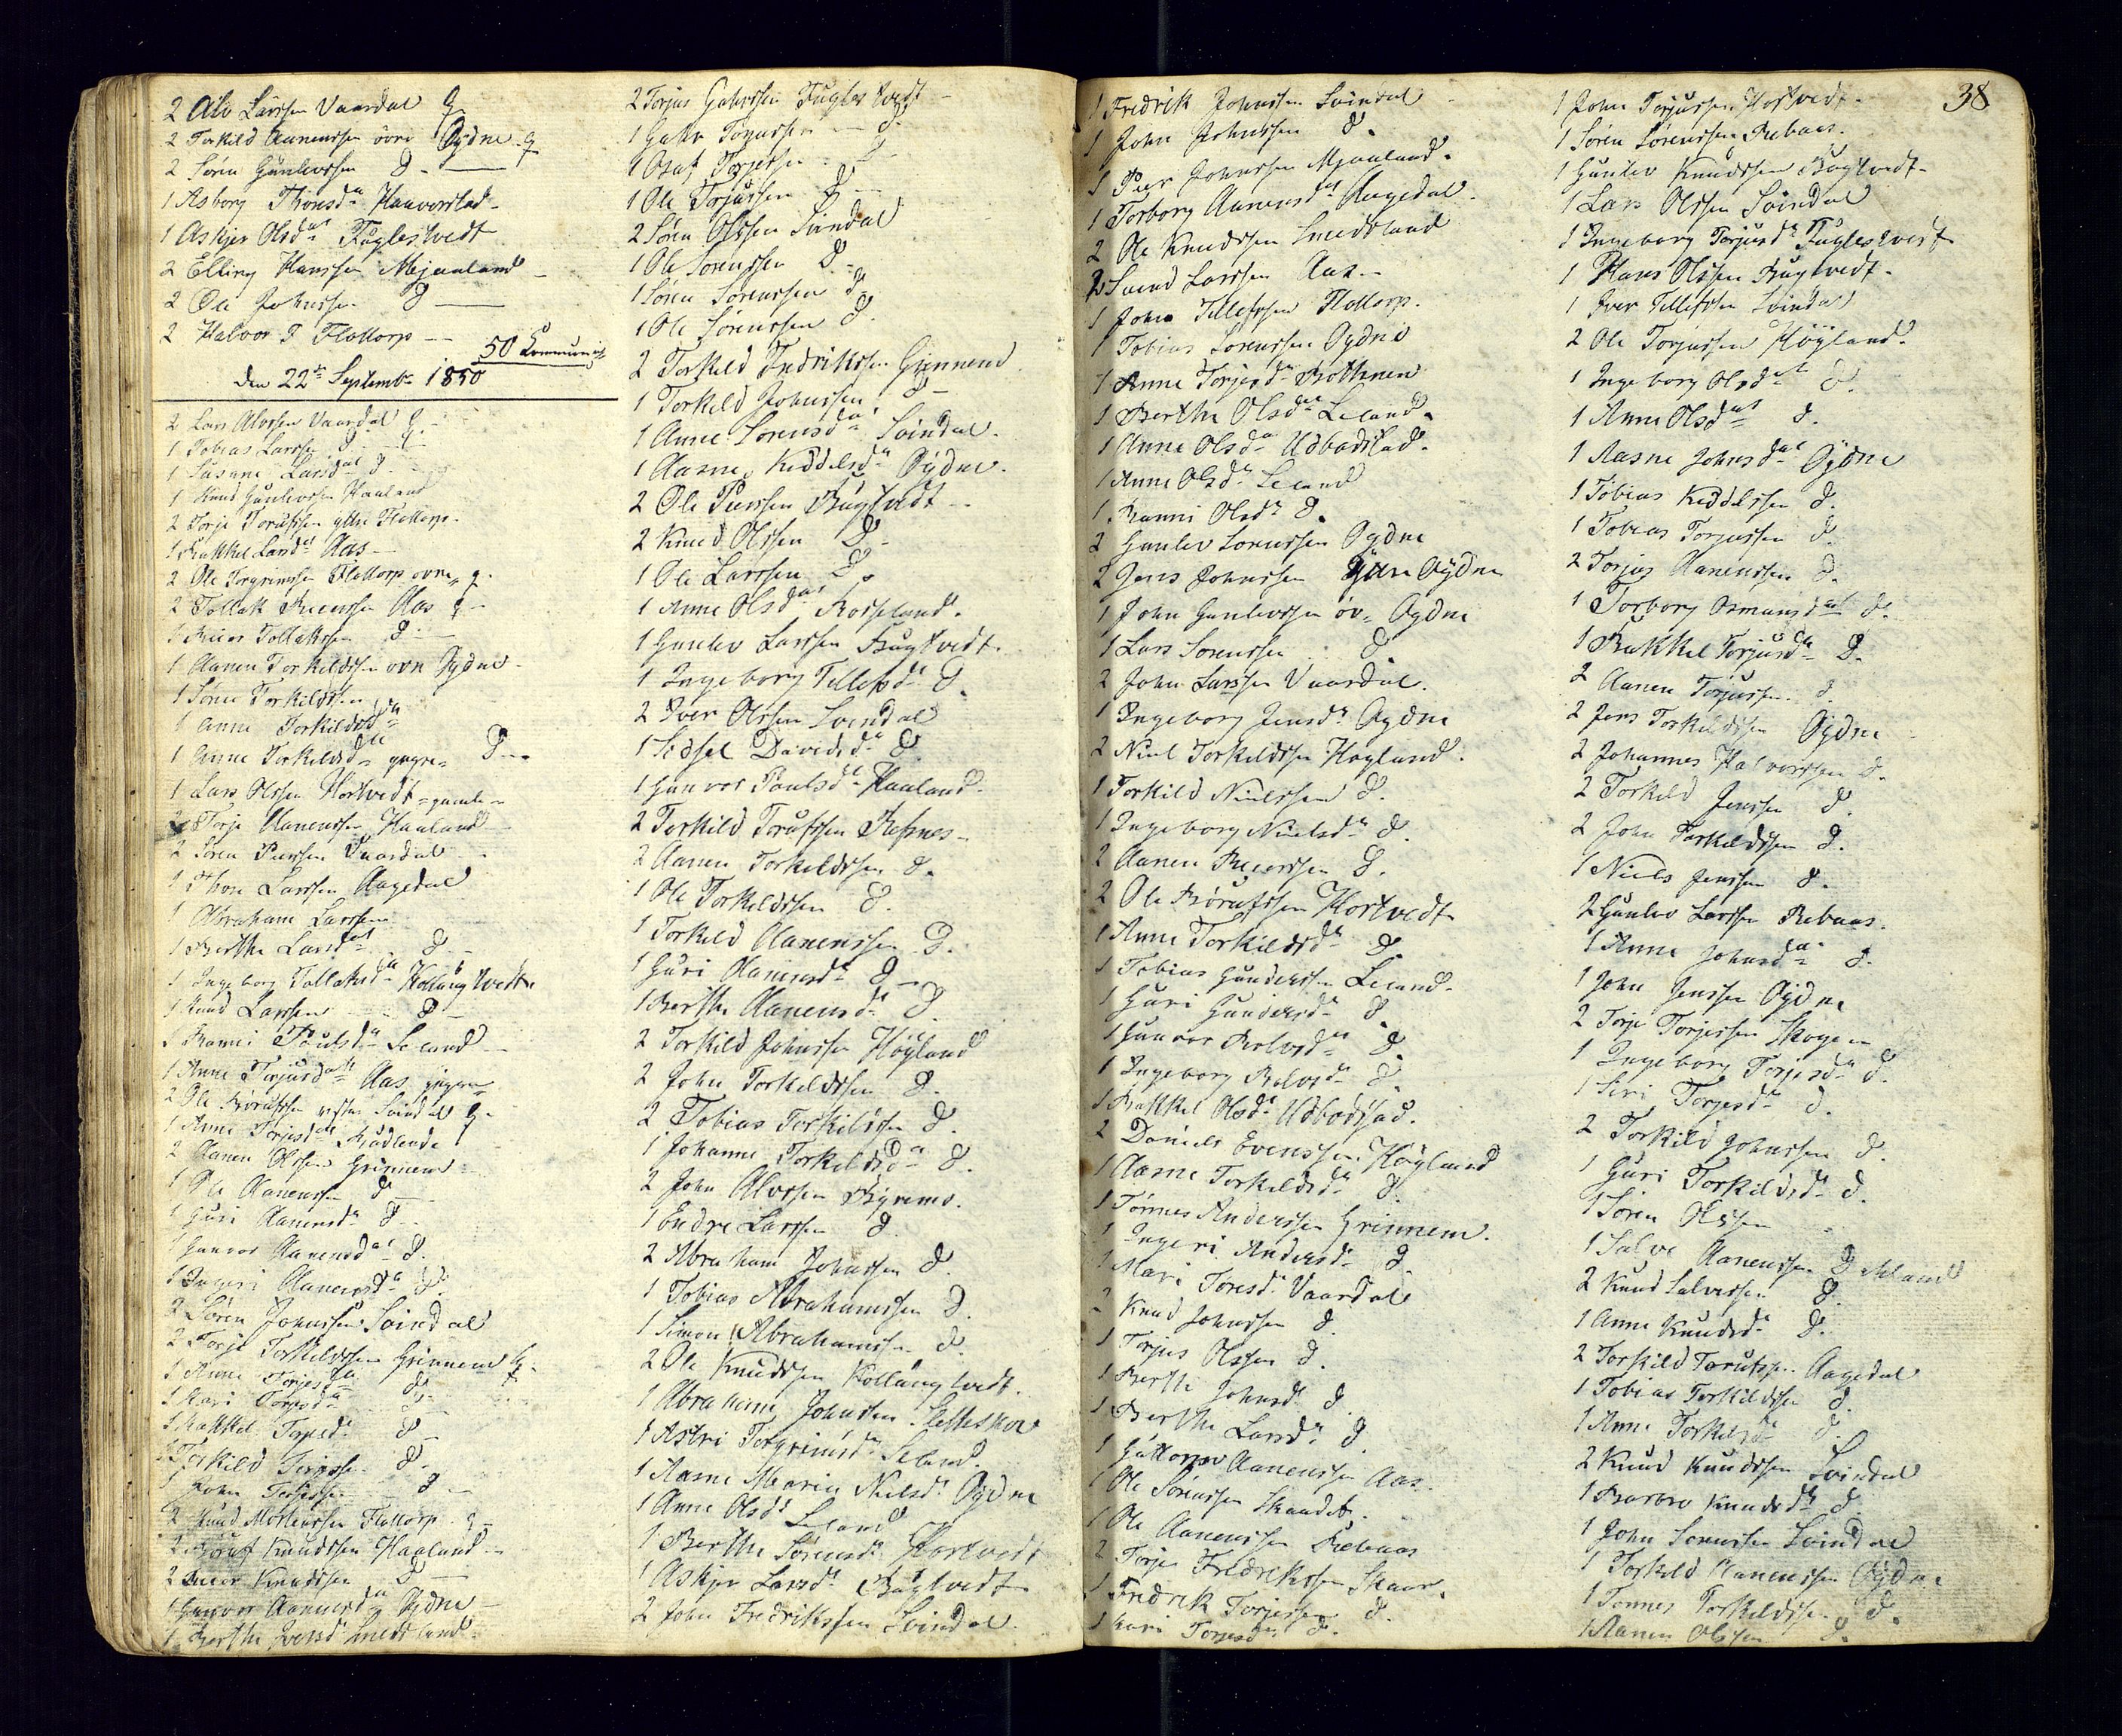 2 Alv Larssen Vaardal G.
2 Torkild Aanenssen övre Øydne G
2 Sören Gunlevssen D. —
1 Asborg Thorsdr Haaverstad -
1 Askjer Olsdat Fuglestvedt
2 Elling Hanssen Mjaaland -
2 Ole Johnssen D —
2 Halvor P Flottorp --
50 Communic
den 22de Septembr 1850
2 Lars Alvssen Vaardal G. -
1 Tobias Larssen D
1 Susane Larsdat D.
1 Knud Gunlevssen Haaland
2 Torje Torufssen yttre Flottorp.
1 Rakkel Larsdat Aas -
2 Ole Torgrimssen Flottorp övre G.
2 Tollak Reierssen Aas G -
1 Reier Tollakssen D. -
1 Aanen Torkildssen övre Øydne -
1 Sören Torkildssen
1 Anne Torkildsda
1 Anne Torkildsda yngre D -.
1 Lars Olssen Hortvedt gamle
2 Torje Aanenssen Haaland
2 Sören Peerssen Vaardal -
1 Thore Larssen Aagedal
1 Abraham Larssen
1 Berthe Larsdat D. -
1 Ingeborg Tollaksda Kollungtvedt.
1 Knud Larssen D -
1 Ranni Paulsda Leland
1 Anne Torjusdatt Aas yngre
2 Ole Börufssen vestre Svindal G.
1 Anne Torjesdat
2 Aanen Olssen Grinnem
1 Ole Aanenssen D
1 Guri Aanensdr D -
1 Gunvor Aanensdat D.
1 Ingeri Aanensda D.
2 Sören Johnssen Svindal
2 Torje Torkildssen Grinnem G.
1 Anne Torjesda
1 Kari Torjesda D. -
1 Rakkel Torjesd. D -
1 Torkild Torjessen D.
1 John Torjessen D -
2 Knud Mortenssen Flottorp G -
2 Böruf Knudssen Haaland -
2 Reier Knudssen D -
1 Gunvor Aanensda Øydne -
1 Berthe Jensd Smedsland -
2 Torjus Gahrssen Fuglestvedt -
1 Gahr Torjussen - D.
1 Osuf Torjessen - D -
1 Ole Torjussen D -
2 Sören Olssen Svindal
1 Ole Sörenssen D -
1 Sören Sörenssen D -
1 Ole Sörenssen D.
2 Torkild Fredrikssen Grinnem
1 Torkild Johnssen D -
1 Anne Sörensda Svindal.
1 Aasne Keddelsda Øydne.
2 Ole Peerssen Bugtvedt -
2 Knud Olssen D -
1 Ole Larssen D.
1 Anne Olsdat Rosseland.
1 Gunlev Larssen Bugtvedt.
1 Ingeborg Tellefsda D.
2 Iver Olssen Svindal
1 Sidsel Davidsda D.
1 Gunvor Paulsda Haaland.
2 Torkild Torufssen Refsnes -
2 Aanen Torkildssen D.
1 Ole Torkildssen D.
1 Torkild Aanenssen D.
1 Guri Aanensda D -
1 Berthe Aanensda D.
2 Torkild Johnssen Höyland
2 John Torkildssen D.
2 Tobias Torkildssen D.
1 Johanne Torkildsda D.
2 John Alvssen Bgremo.
1 Endre Larssen D.
2 Abraham Johnssen D.
1 Tobias Abrahamssen D.
1 Simon Abrahamssen D.
2 Ole Knudssen Kollungtvedt.
1 Abraham Johnssen Sletteskov
1 Astri Torgrimsda Leland.
1 Aasne Marie Nielsda Øydne
1 Anne Olsda Leland
1 Berthe Sörensda Hortvedt
1 Askjer Larsda Bugtvedt
2 John Fredrikssen Svindal.
38
1 Fredrik Johnssen Svindal
1 John Johnssen D.
1 Peer Johnssen Mjaaland.
1 Torborg Aanensdat Aagedal.
2 Ole Knudssen Smedsland
2 Svend Larssen Aas -
1 John Tellefssen Flottorp.
1 Tobias Sörenssen Øydne
1 Anne Torjesda Bothnen
1 Berthe Olsda Leland.
1 Anne Olsda Udbødstad.
1 Anne Olsda Leland
1 Ranni Olsda D.
2 Gunlev Sörenssen Øydne
2 Jens Johnssen Yttre Øydne
1 John Gunlevssen öv. Øydne
1 Lars Sörenssen D
2 John Larssen Vaardal.
1 Ingeborg Jensda Øydne
2 Niel Torkildssen Høyland.
1 Torkild Nielssen D.
1 Ingeborg Nielsda D.
2 Aanen Reierssen D.
2 Ole Börufssen Hortvedt
1 Anne Torkildsda D.
1 Tobias Gunderssen Leland.
1 Guri Gundersda D
1 Gunvor Rolvsda D.
1 Ingeborg Rolvsda D.
1 Rakkel Olsda Udbødstad.
2 Daniels Evenssen Höyland
1 Aasne Torkildsda D.
1 Tönnes Anderssen Grinnem.
1 Ingeri Andersda D.
1 Mari Toresda Vaardal
2 Knud Johnssen D.
1 Torjus Olssen D.
1 Berthe Johnsda D.
1 Berthe Larsda D.
1 Guttorm Aanenssen Aas.
1 Ole Sörenssen Skaadet.
1 Ole Aanenssen Rebaas
2 Torje Fredrikssen Skaar.
1 Fredrik Torjessen D.
1 Kari Torjesda D.
1 John Torjussen Hortvedt.
1 Sören Sörenssen Rebaas.
1 Gunlev Knudssen Bugtvedt.
1 Lars Olssen Svindal
1 Ingeborg Torjusda Fuglestvedt
1 Hans Olssen Bugtvedt.
1 Iver Tellefssen Svindal
2 Ole Torjussen Höyland.
1 Ingeborg Olsdat D.
1 Anne Olsdat D.
1 Aasne Johnsdat Øydne
1 Tobias Keddelssen D.
1 Tobias Torjussen D.
2 Torjus Aanenssen D.
1 Torborg Osmunsdat D.
1 Rakkel Torjusda D.
2 Aanen Torjussen D.
2 Jens Torkildssen Øydne
2 Johannes Halvorssen D.
2 Torkild Jenssen D.
2 John Torkildssen D.
1 Niels Jenssen D.
2 Gunlev Larssen Rebaas.
1 Anne Johnsda D.
1 John Jenssen Øydne
2 Torje Torjessen Skogen
1 Ingeborg Torjesda D.
1 Siri Torjesda D.
2 Torkild Johnssen D.
1 Guri Torkildsda D.
1 Sören Olssen
1 Salve Aanenssen
2 Knud Salvessen D.
1 Anne Knudsda D.
2 Torkild Torufssen Aagedal
1 Tobias Torkildssen D.
1 Anne Torkilsda D.
2 Knud Knudssen Svindal
1 Barbro Knudsda D.
1 John Sörenssen Svindal
1 Torkild Aanenssen Øydne
1 Tönnes Torkildssen D.
1 Aanen Olssen D.